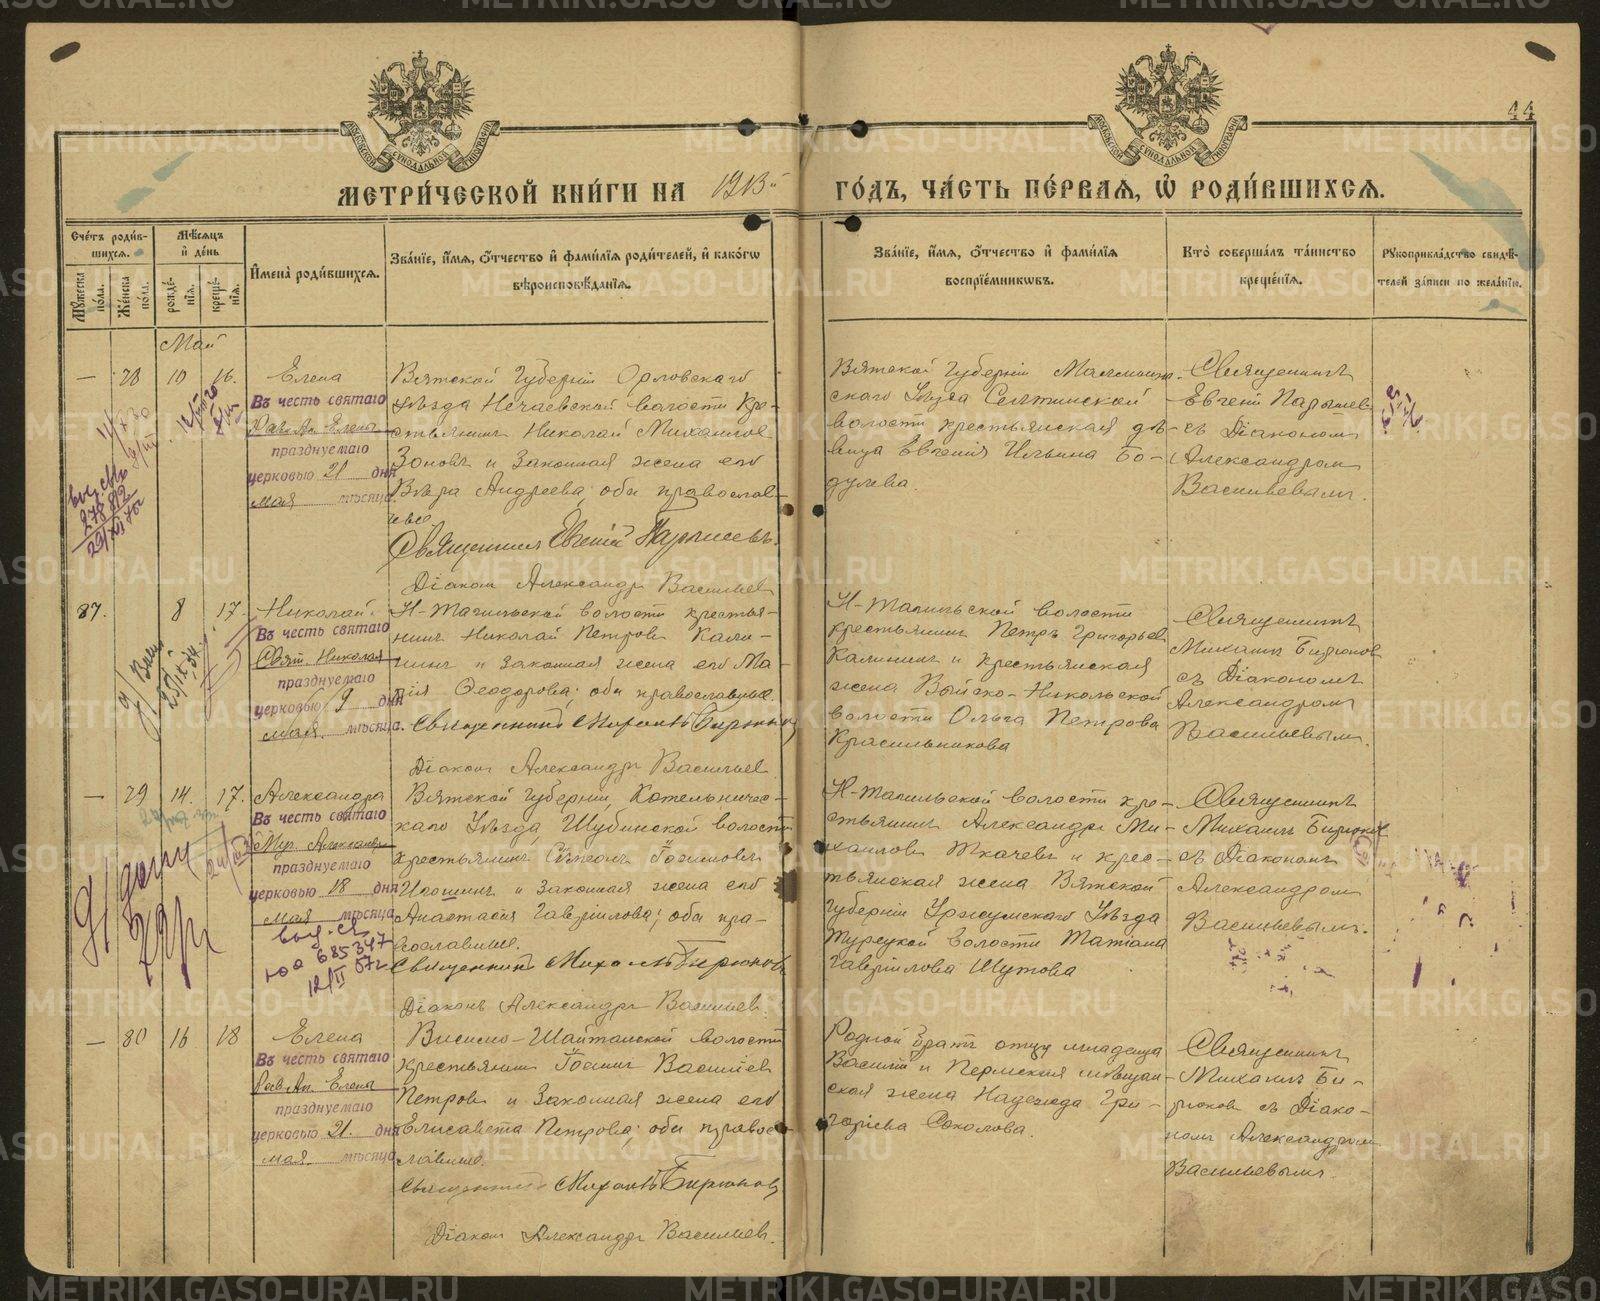 44
МЕТРИ́ЧЕСКОЙ КНИ́ГИ НА 1913й ГО́ДЪ, ЧА́СТЬ ПЕ́РВАЯ, Ѡ҆ РОДИ́ВШИХСЯ.
Сче́тъ роди́в-
шихся.
Мꙋжеска по́ла.
Же́нска по́ла.
Мѣ́сяцъ и҆ де́нь
рожде́-
нїя.
креще́-
нїя.
И҆мена̀ роди́вшихся.
Зва́нїе, и҆́мя, ѻ҆́тчество и҆ фами́лїя роди́телей, и҆ како́гѡ
вѣроисповѣ́данїя.
Зва́нїе, и҆́мя, ѻ҆́тчество и҆ фами́лїя
воспрїе́мникѡвъ.
Кто̀ соверша́лъ та́инство
креще́нїя.
Рꙋкоприкла́дство свидѣ́-
телей за́писи по жела́нїю.
Май
— 78 10 16.
Елена
Въ честь святаго
Рав. Ап. Елены
празднуемаго
церковью 21 дня
мая мѣсяца
Вятской Губерніи Орловскаго
Уѣзда Нечаевской волости кре-
стьянинъ Николай Михаилов
Зоновъ и законная жена его
Вѣра Андреева; оба православ-
ные
Священникъ Евгеній Парышевъ.
Діаконъ Александръ Васильев
Вятской Губерніи Малмыж-
скаго Уѣзда Селтинской
волости крестьянская дѣ-
вица Евгенія Ильина Бо-
дулева.
Священникъ
Евгеній Парышев
съ Діакономъ
Александром
Васильевымъ.
87. 8 17.
Николай.
Въ честь святаго
Свят. Николая
празднуемаго
церковью 9 дня
мая. мѣсяца.
Н-Тагильской волости крестья-
нинъ Николай Петров Кали-
нинъ и законная жена его Ма-
рія Ѳеодорова; оба православные.
Священникъ Михаилъ Бирюков
Діаконъ Александръ Васильев
Н-Тагильской волости
крестьянинъ Петръ Григорьев
Калининъ и крестьянская
жена Выйско-Никольской
волости Ольга Петрова
Красильникова
Священникъ
Михаилъ Бирюков
съ Діакономъ
Александромъ
Васильевымъ.
— 79 14. 17.
Александра
Въ честь святаго
Муч. Александры
празднуемаго
церковью 18 дня
мая мѣсяца
685347
12/II 57г
Вятской Губерніи, Котельничес-
каго Уѣзда, Шубинской волости
крестьянинъ Сѵмеонъ Іоаннов
и законная жена его
Анастасія Гавріилова; оба пра-
вославные.
Священникъ Михаилъ Бирюков
Діаконъ Александръ Васильев.
Н-Тагильской волости кре-
стьянинъ Александръ Ми-
хаилов Ткачевъ и крес-
тьянская жена Вятской
Губерніи Уржумскаго Уѣзда
Турецкой волости Татіана
Гавріилова Шутова
Священникъ
Михаилъ Бирюков
съ Діакономъ
Александром
Васильевымъ.
— 80 16 18
Елена
Въ честь святаго
Рав. Ап. Елены
празднуемаго
церковью 21. дня
мая. мѣсяца
Висимо-Шайтанской волости
крестьянинъ Іоаннъ Васильев
Петровъ и законная жена его
Елисавета Петрова; оба правос-
лавные.
Священникъ Михаилъ Бирюков
Діаконъ Александръ Васильев.
Родной братъ отцу младенца
Василій и Пермская мѣщан-
ская жена Надежда Гри-
горіева Соколова.
Священникъ
Михаилъ Би-
рюков съ Діако-
номъ Александром
Васильевымъ.
METRIKI.GASO-URAL.RU